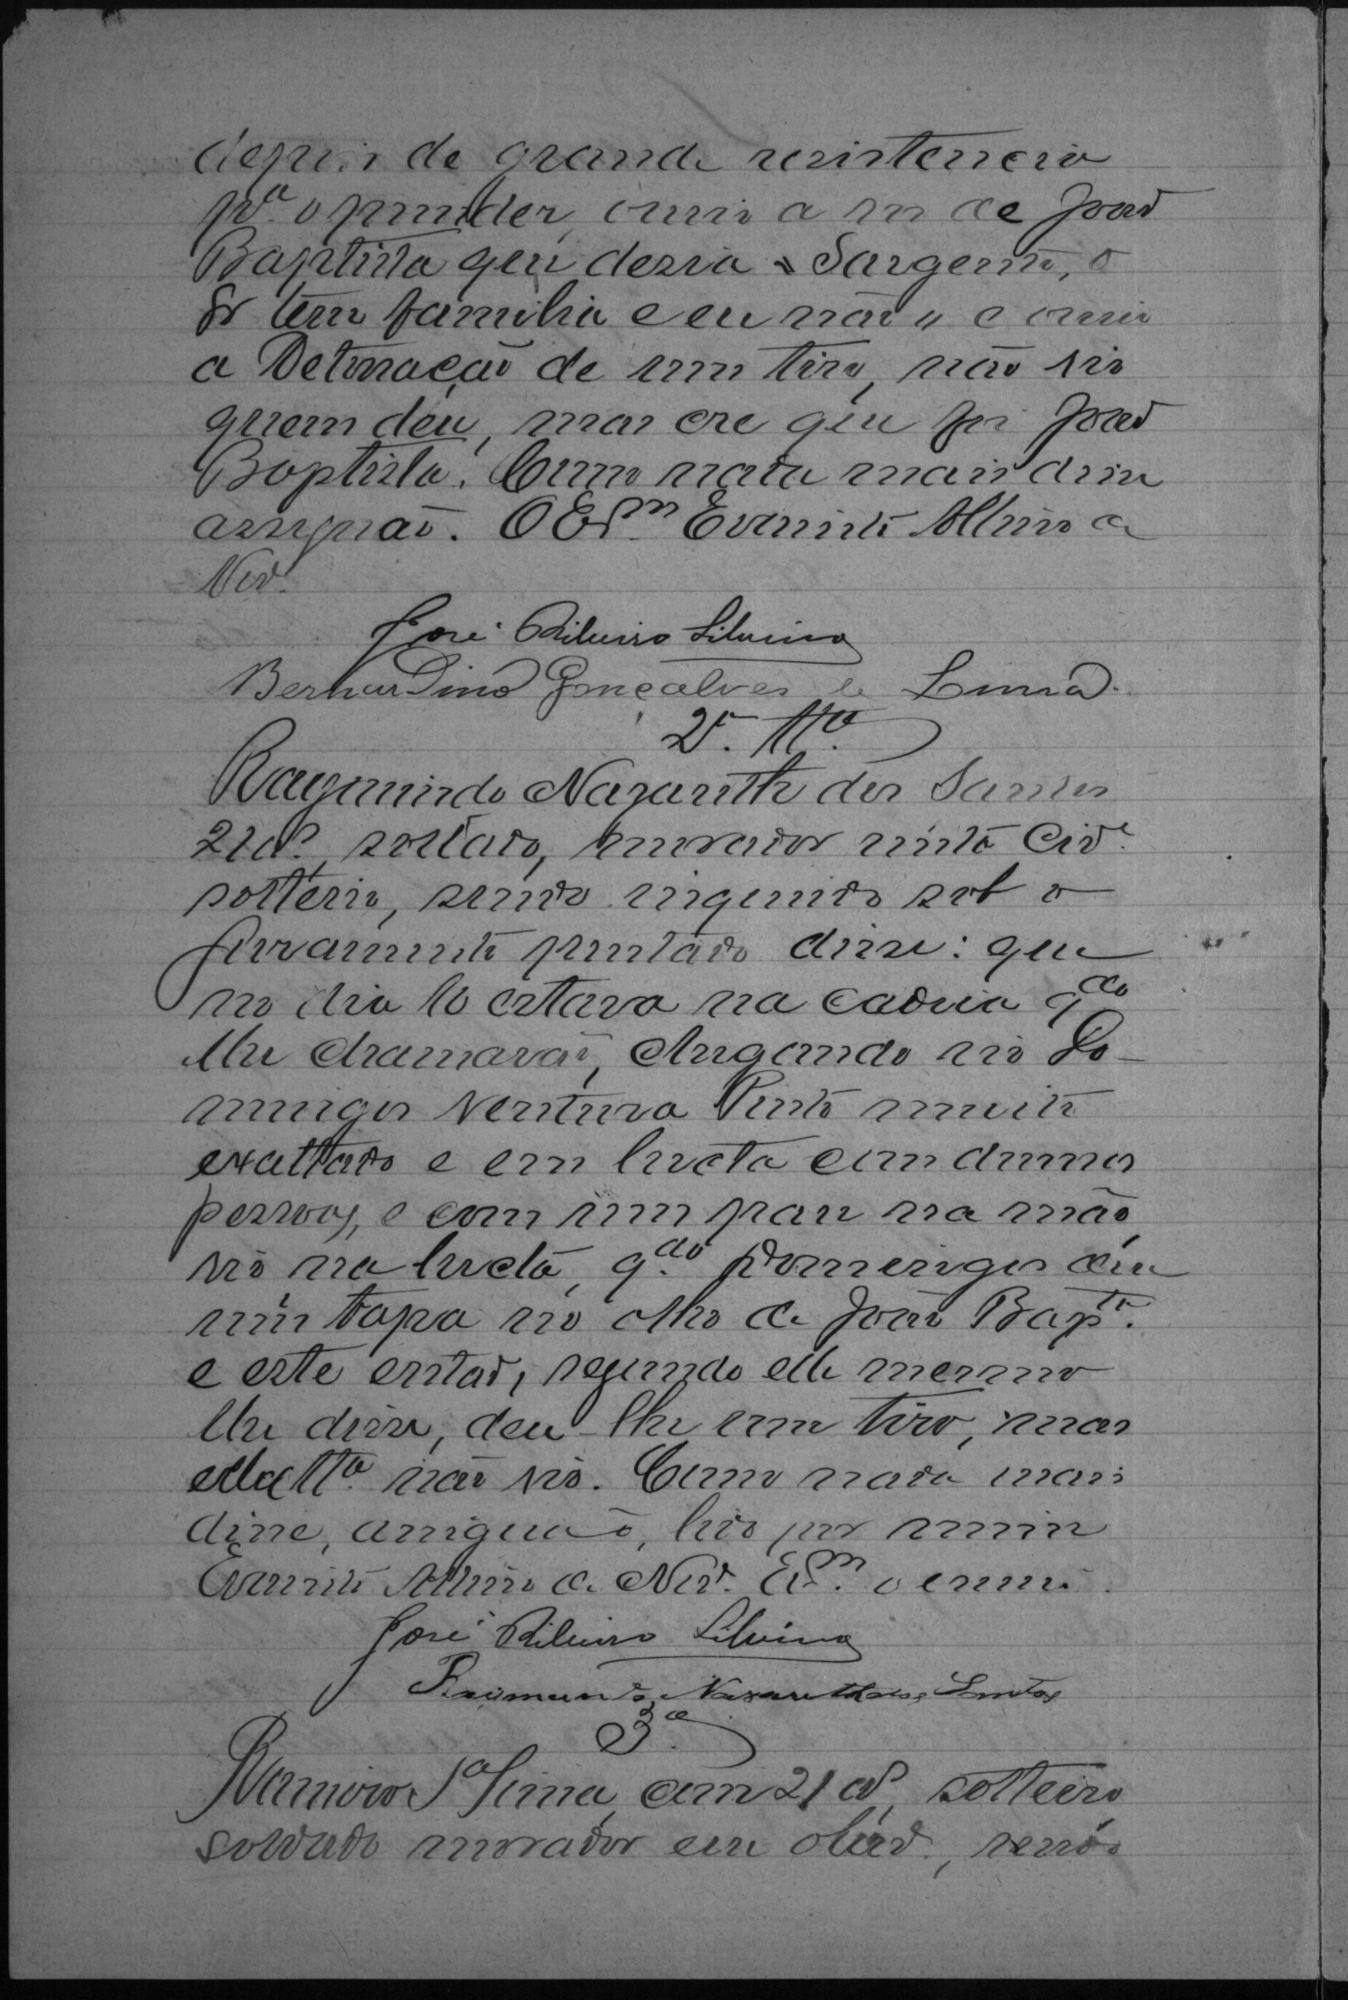 depois de grande resistencia
pª o prender, ouvio a voz de João
Baptista que dezia "Sargento, o
Sr tem familia e eu não" e ouvio
a Detonação de um tiro, não vio
quem deu, mas cre que foi João
Baptista. Como nada mais disse
assignão. O Esm Evaristo Albino de
José Ribeiro Silvino
Bernardino Gonçalves de Lima.
2ª Ttª
Raymundo Nazareth dos Santos
21 as, soldado, morador nesta Cide
solteiro, sendo inquirido sob o
juramento prestado disse: que
no dia 10 estava na cadeia qdo
lhe chamarão, chegando vio Do-
mingos Ventura Pinto muito
exaltado e em lucta com dumas
pessoas, e com um pau na mão
vio na lucta, qdo Domingos deu
um tapa no olho de João Bapta.
e este então, segundo elle mesmo
lhe disse, deu-lhe um tiro, mas
elle Ttª não vio. Como nada mais
disse, assignão, lido por mim
Evaristo Albino de Esm o escrevi.
José Ribeiro Silvino
Raimundo Nazareth dos Santos
3ª
Ramiro Sª Lima, com 21 as, solteiro
soldado morador em, sendo